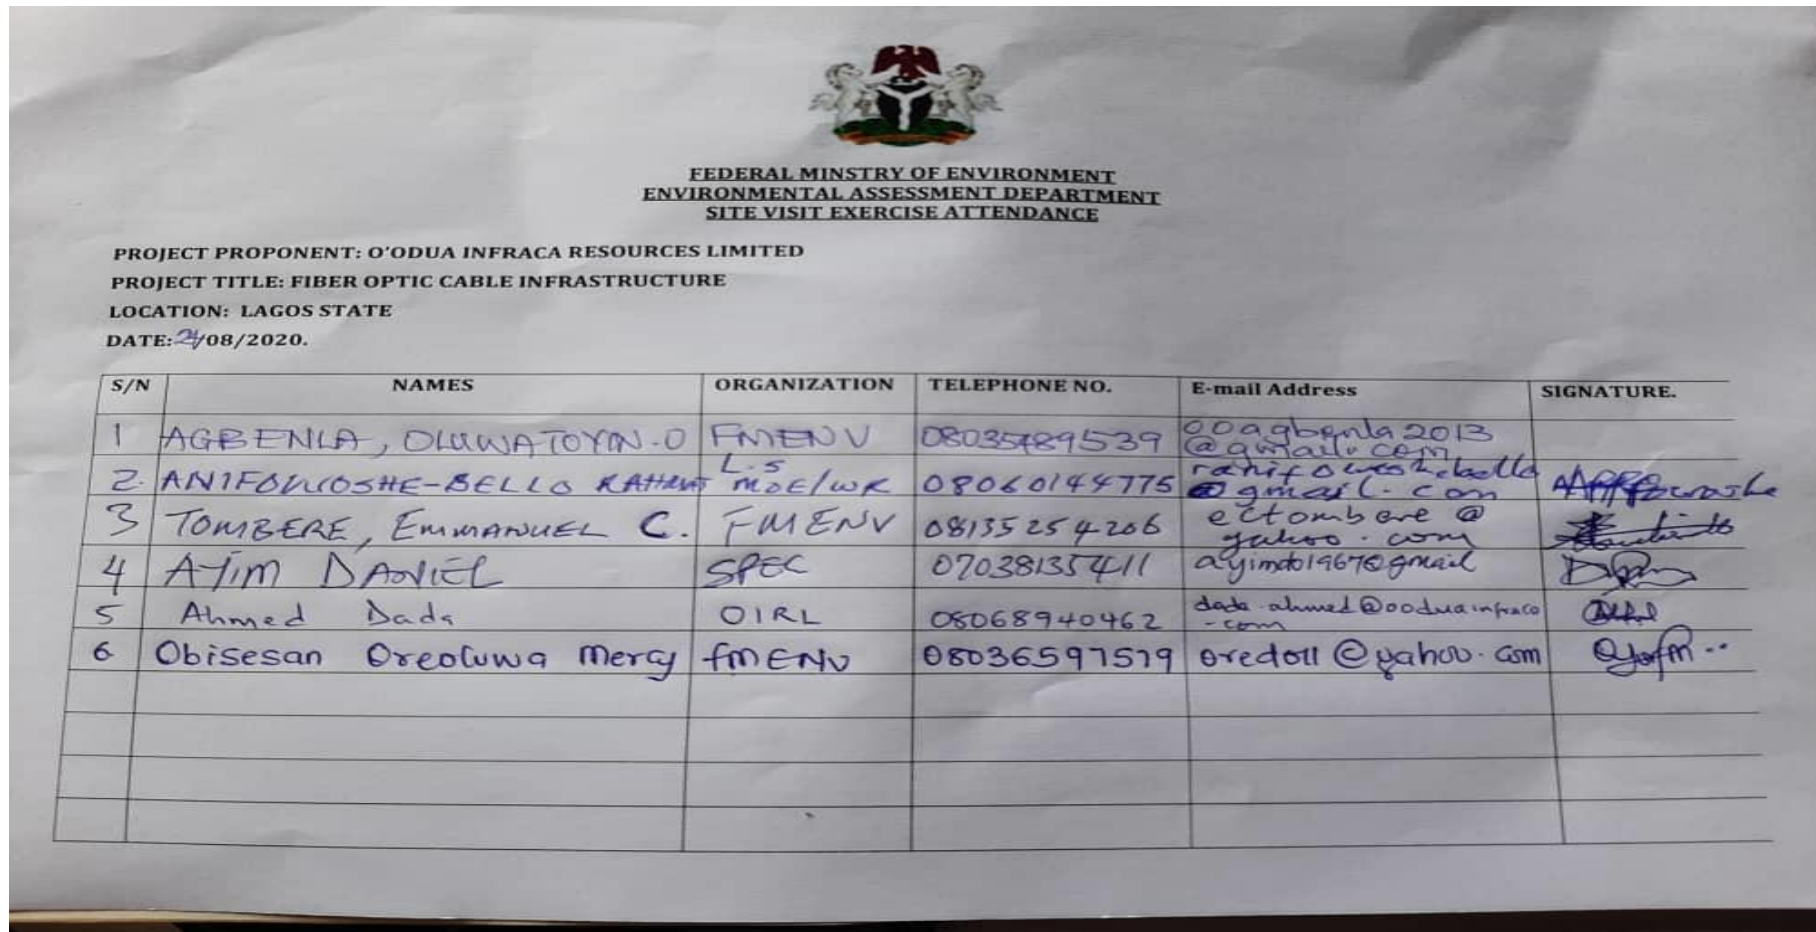 FEDERAL MINSTRY OF ENVIRONMENT
ENVIRONMENTAL ASSESSMENT DEPARTMENT
SITE VISIT EXERCISE ATTENDANCE
PROJECT PROPONENT: O'ODUA INFRACA RESOURCES LIMITED
PROJECT TITLE: FIBER OPTIC CABLE INFRASTRUCTURE
LOCATION: LAGOS STATE
DATE: 24/08/2020.
S/N NAMES ORGANIZATION TELEPHONE NO. E-mail Address SIGNATURE.
1 AGBENLA, OLUWATOYIN.O FMENV ooagbenla2013
@gmail.com
2. ANIFOWOSHE-BELLO L.S
MOE/WR 08060144775 ranifowoshebello
@gmail.com
3 TOMBERE, EMMANUEL C. FMENV 08135254206 ectombere@
yahoo.com
4 AYIM DANIEL SPEC 07038135411 ayimdo1967@gmail
5 Ahmed Dada OIRL 08068940462 dada.ahmed@ooduainfraco
.com
6 Obisesan Oreoluwa Mercy fmENV 08036597579 oredoll@yahoo.com